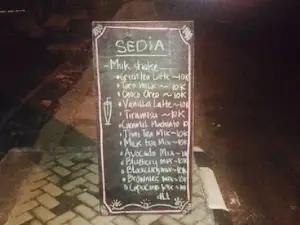 SEDIA
~ Milk shake
Green tea Latte ~10K
Taro milk ~ 10K
Choco Oreo ~ 10K
Vanilla Latte ~ 10K
Tiramisu ~ 10K
Caramel Machiato 10
Thai Tea Mix ~ 10K
Milk tea Mix ~ 10K
Avocado Mix ~ 10
Blueberry mix ~ 10K
Blackcurry mix ~ 10K
Brownies mix ~ 10K
Capucino Mix ~ 10K
dll